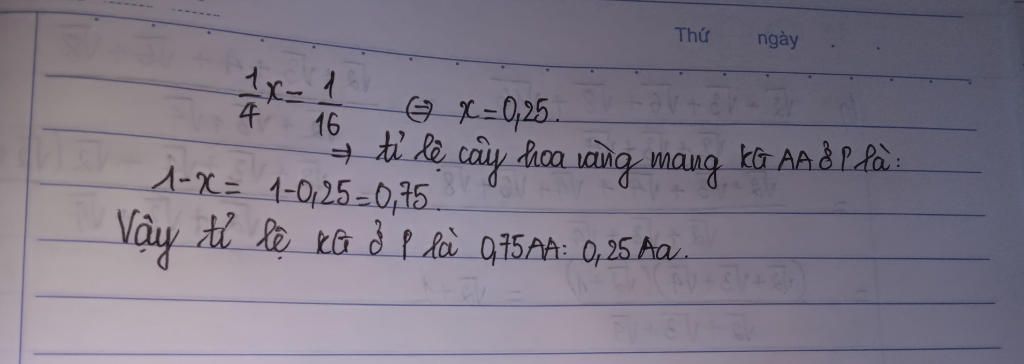 Thứ ngày . .
1/4 x = 1/16 ⇔ x = 0,25.
⇒ tỉ lệ cây hoa vàng mang KG AA ở P là:
1-x = 1-0,25 = 0,75.
Vậy tỉ lệ KG ở P là 0,75AA: 0,25Aa.